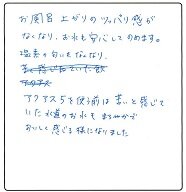 お風呂上がりのツッパリ感が
なくなり、お水も安心してのめます。
塩素の匂いもなくなり、
アクアス5を使う前は苦いと感じて
いた水道のお水もまろやかで
おいしく感じる様になりました